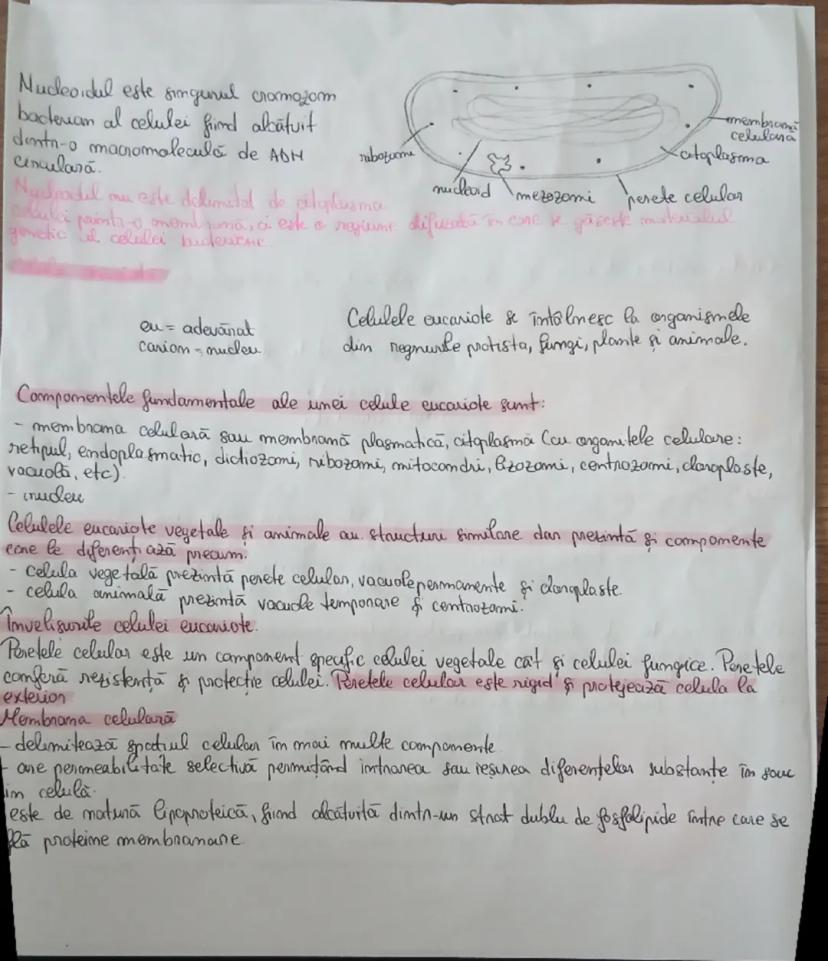 Nucleoidul este singurul cromozom
bacterian al celulei fiind alcătuit
dintr-o macromoleculă de ADN
circulară.
ribozomi
nucleoid
mezozomi
perete celular
citoplasma
membrană
celulară
Nucleoidul nu este delimitat de citoplasma
celulei printr-o membrană, ci este o regiune difuzată în care se găsește materialul
genetic al celulei bacteriene
eu = adevărat
carion = nucleu
Celulele eucariote se întâlnesc la organismele
din regnurile protista, fungi, plante și animale.
Componentele fundamentale ale unei celule eucariote sunt:
- membrana celulară sau membrană plasmatică, citoplasmă (cu organitele celulare:
retipul, endoplasmatic, dictiozomi, ribozomi, mitocondri, lizozomi, centrozomi, cloroplaste,
vacuolă, etc)
- nucleu
Celulele eucariote vegetale și animale au structuri similare dar prezintă și componente
care le diferențiază precum:
- celula vegetală prezintă perete celular, vacuole permanente și cloroplaste.
- celula animală prezintă vacuole temporare și centrozomi.
Învelișurile celulei eucariote.
Peretele celular este un component specific celulei vegetale cât și celulei fungice. Peretele
conferă rezistență și protecție celulei. Peretele celular este rigid și protejează celula la
exterior
Membrana celulară
- delimitează spațiul celular în mai multe componente
- are permeabilitate selectivă permițând intrarea sau ieșirea diferențelor substanțe în sau
din celulă.
este de natură lipoproteică, fiind alcătuită dintr-un strat dublu de fosfolipide între care se
flă proteine membranare